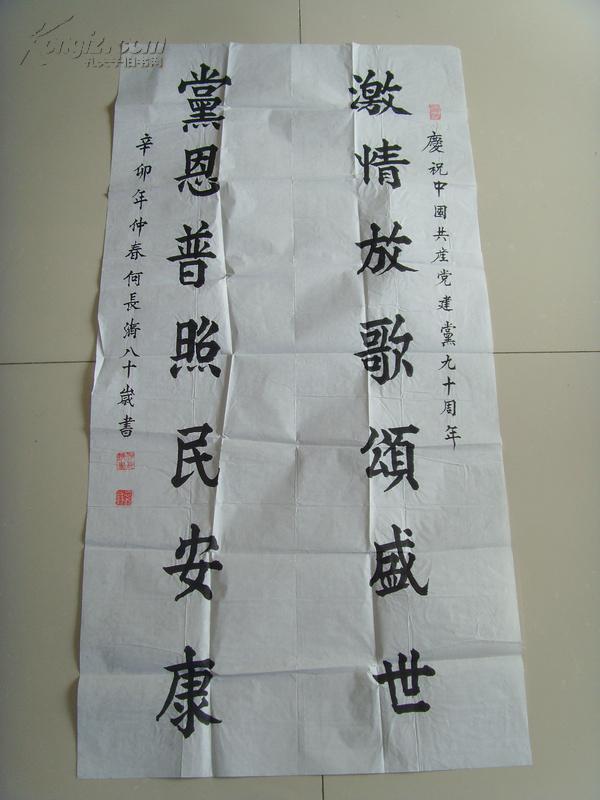 慶祝中國共産党建黨九十周年
激情放歌頌盛世
黨恩普照民安康
辛卯年仲春何長濟八十歲書
Kongfz.com
孔夫子旧书网